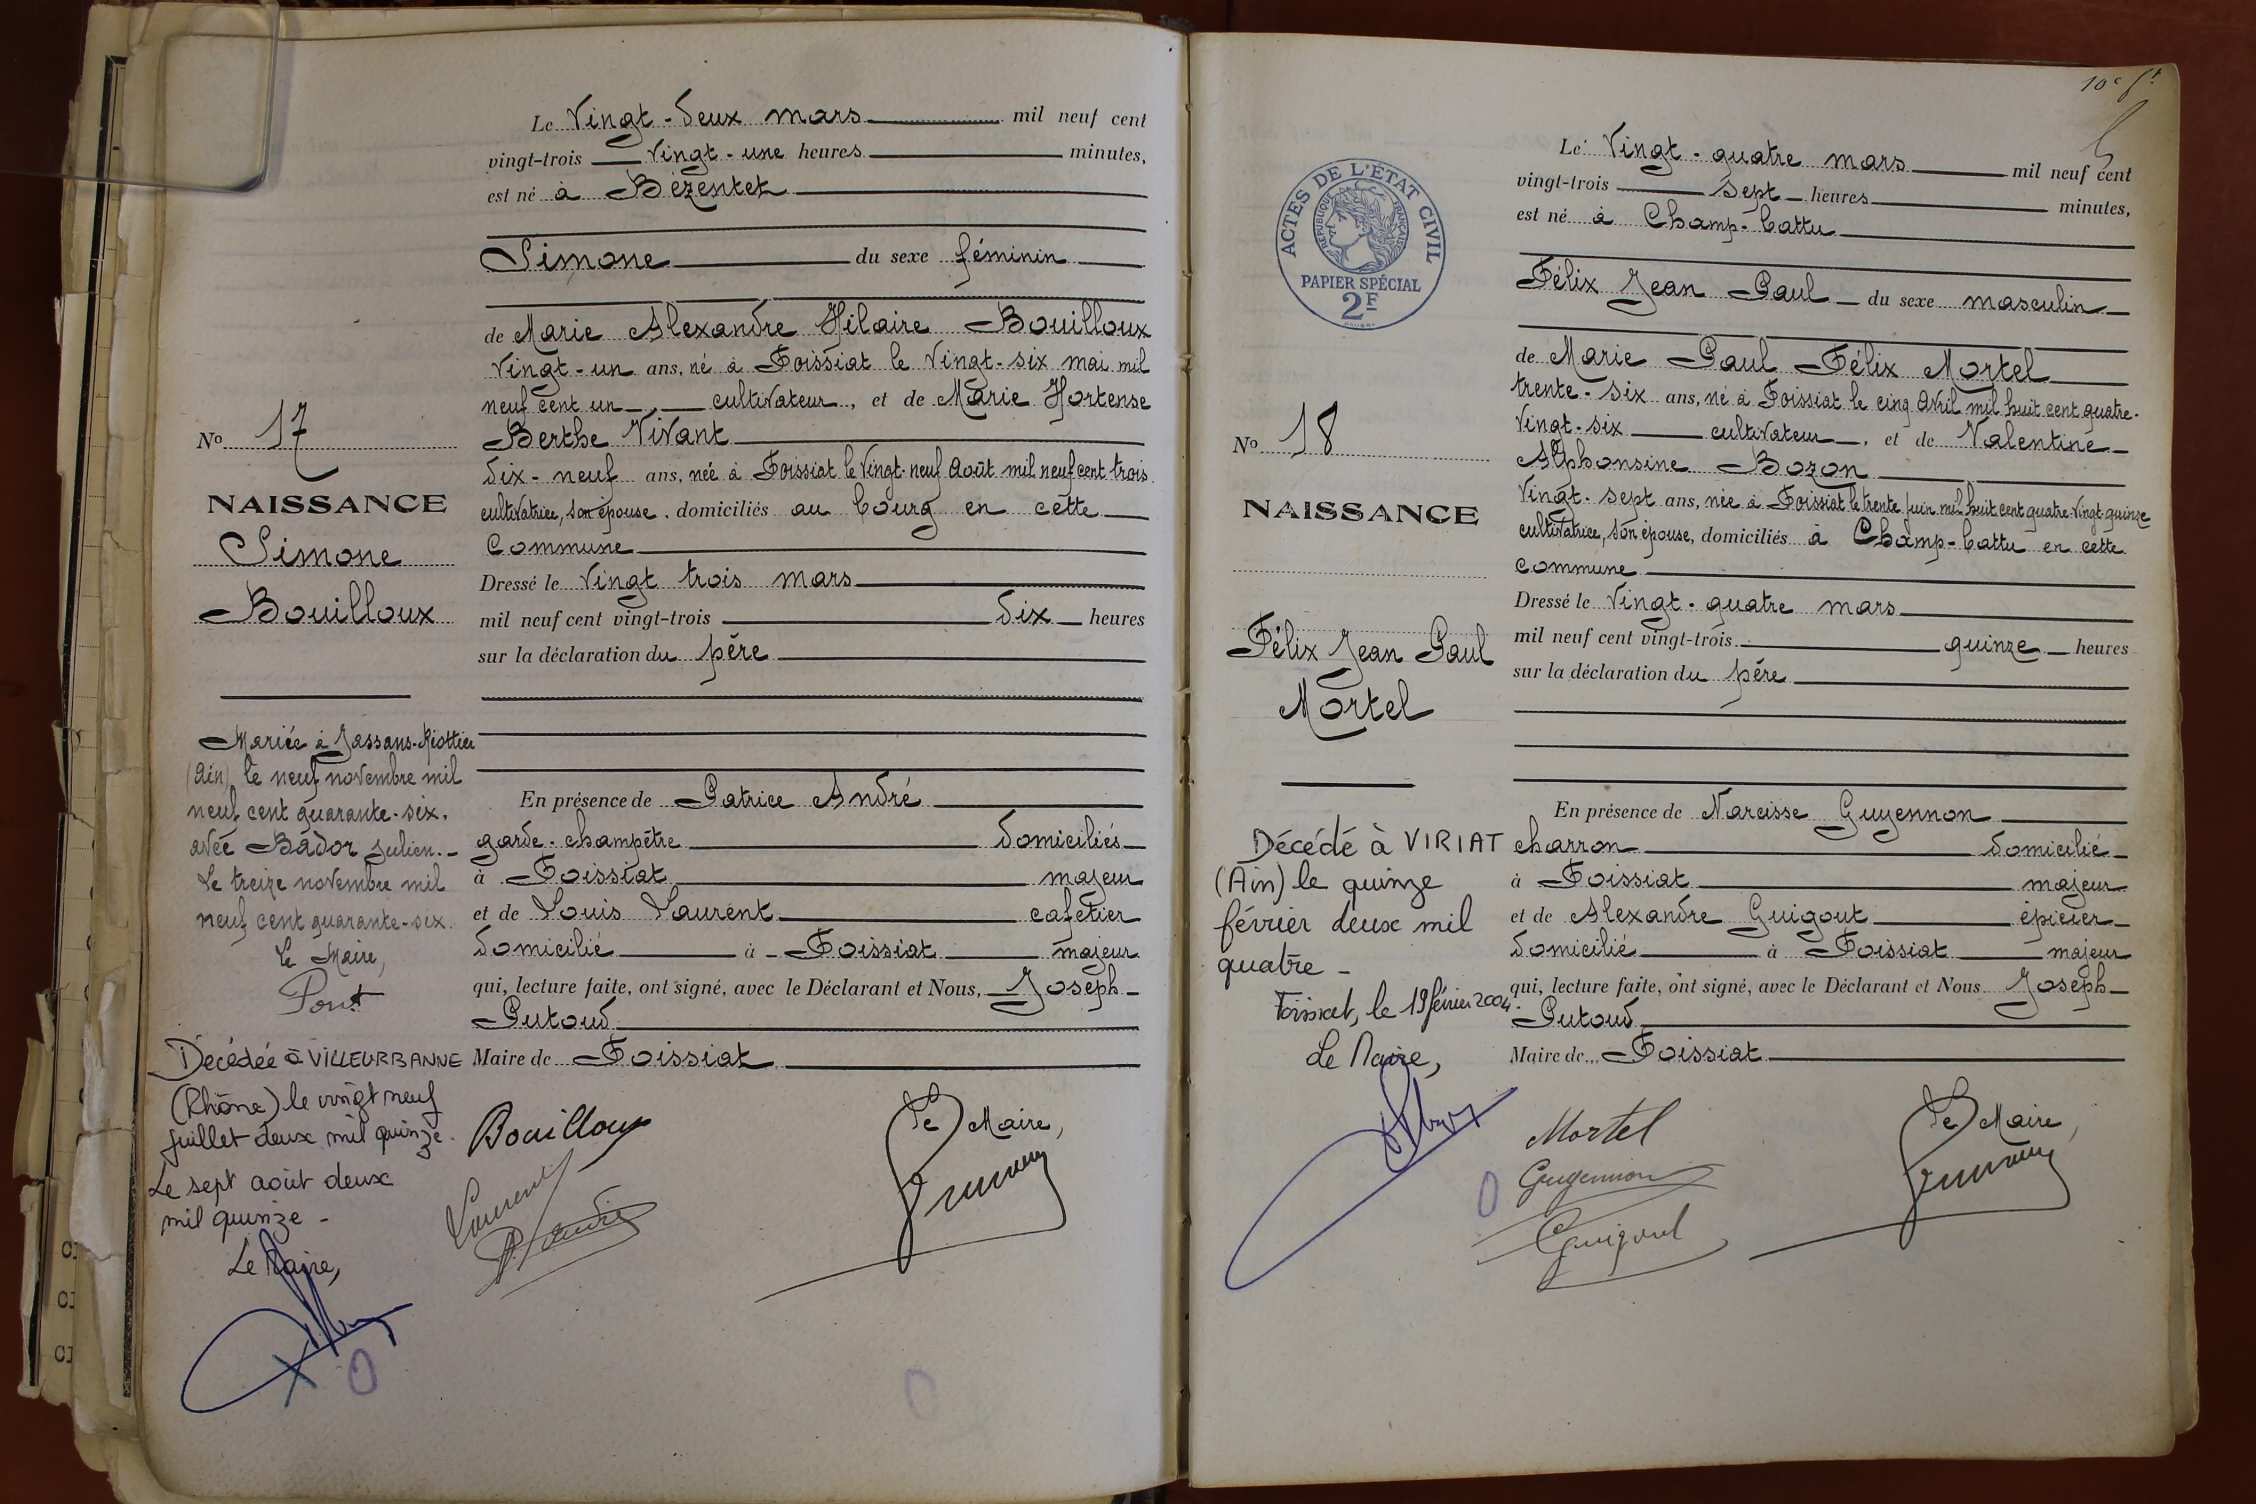 Le Vingt-deux mars mil neuf cent
vingt-trois Vingt-une heures minutes,
est né à Bézentet
Simone du sexe féminin
de Marie Alexandre Hilaire Bouilloux
Vingt-un ans, né à Foissiat le Vingt-six mai mil
neuf cent un, cultivateur, et de Marie Hortense
Berthe Vivant
dix-neuf ans, née à Foissiat le Vingt-neuf Août mil neuf cent trois
cultivatrice, son épouse, domiciliés au bourg en cette
commune
Dressé le Vingt trois mars
mil neuf cent vingt-trois dix heures
sur la déclaration du père
En présence de Patrice André
garde-champêtre domiciliés
à Foissiat majeur
et de Louis Laurent cafetier
domicilié à Foissiat majeur
qui, lecture faite, ont signé, avec le Déclarant et Nous, Joseph
Putoud
Maire de Foissiat
Bouilloux
Laurent
P. André
Le Maire,
No 17
NAISSANCE
Simone
Bouilloux
Mariée à Jassans-Riottier
(Ain) le neuf novembre mil
neuf cent quarante-six.
avec Bador Julien.
Le treize novembre mil
neuf cent quarante-six.
Le Maire,
Pont
Décédée à VILLEURBANNE
(Rhône) le vingt neuf
juillet deux mil quinze.
Le sept août deux
mil quinze -
Le Maire,
10e ft
ACTES DE L'ETAT CIVIL
REPUBLIQUE FRANÇAISE
PAPIER SPÉCIAL
2F
Le Vingt-quatre mars mil neuf cent
vingt-trois sept heures minutes,
est né à Champ-battu
Félix Jean Paul du sexe masculin
de Marie Paul Félix Mortel
trente-six ans, né à Foissiat le cinq Avril mil huit cent quatre-
Vingt-six cultivateur, et de Valentine
Alphonsine Bozon
Vingt-sept ans, née à Foissiat le trente juin mil huit cent quatre-vingt-quinze
cultivatrice, son épouse, domiciliés à Champ-battu en cette
commune
Dressé le Vingt-quatre mars
mil neuf cent vingt-trois quinze heures
sur la déclaration du père
En présence de Narcisse Guyennon
charron domicilié
à Foissiat majeur
et de Alexandre Guigout épicier
domicilié à Foissiat majeur
qui, lecture faite, ont signé, avec le Déclarant et Nous Joseph
Putoud
Maire de Foissiat
Mortel
Guyennon
Guigout
Le Maire,
No 18
NAISSANCE
Félix Jean Paul
Mortel
Décédé à VIRIAT
(Ain) le quinze
février deux mil
quatre -
Foissiat, le 19 février 2004.
Le Maire,